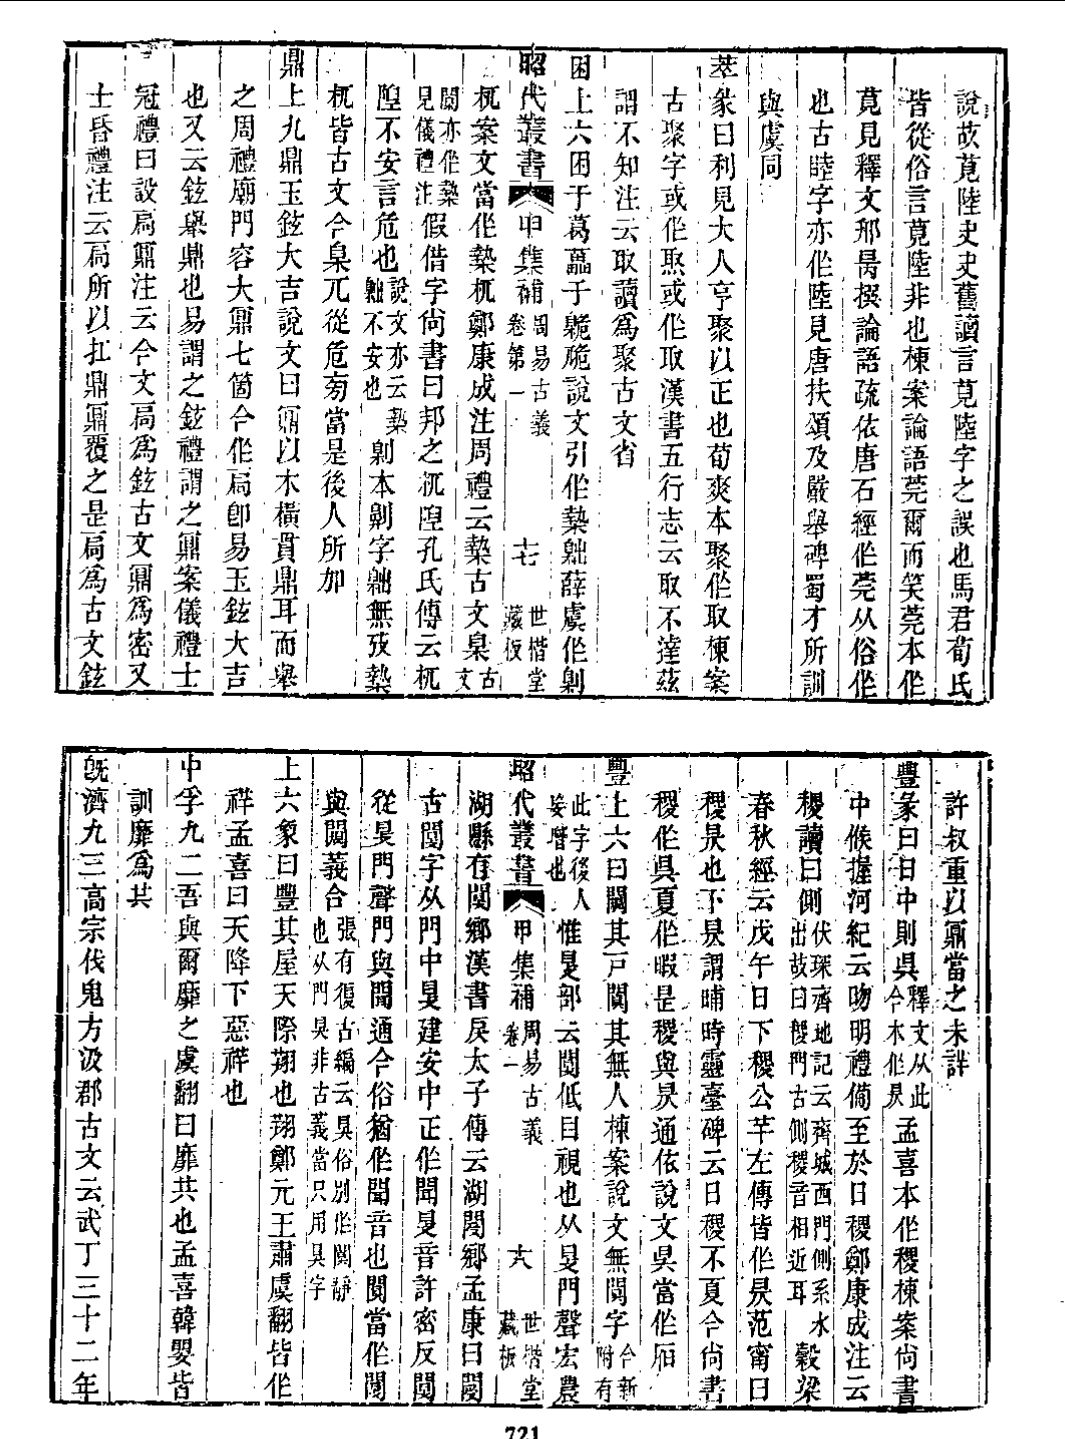 說故莧陸史史舊讀言莧陸字之誤也馬君荀氏
皆從俗言莧陸非也棟案論語莞爾而笑莞本作
莧見釋文邢昺撰論語疏依唐石經作莞从俗作
也古睦字亦作陸見唐扶頌及嚴舉碑蜀才所訓
與虞同
萃彖曰利見大人亨聚以正也荀爽本聚作取棟案
古聚字或作冣或作取漢書五行志云取不達茲
謂不知注云取讀爲聚古文省
困上六困于葛藟于臲卼說文引作槷䵳薛虞作劓
昭代叢書 甲集補 周易古義卷第一 十七 世楷堂藏板
杌案文當作槷杌鄭康成注周禮云槷古文臬古文
闑亦作槷見儀禮注假借字尚書曰邦之杌隉孔氏傳云杌
隉不安言危也說文亦云槷䵳不安也劓本劓字䵳無攷槷
杌皆古文今臬兀從危㫄當是後人所加
鼎上九鼎玉鉉大吉說文曰鼏以木橫貫鼎耳而舉
之周禮廟門容大鼏七箇今作扃卽易玉鉉大吉
也又云鉉舉鼎也易謂之鉉禮謂之鼏案儀禮士
冠禮曰設扃鼏注云今文扃爲鉉古文鼏爲密又
士昏禮注云扃所以扛鼎鼏覆之是扃爲古文鉉
許叔重以鼏當之未詳
豐彖曰日中則昃釋文从此今本作昃孟喜本作稷棟案尚書
中候握河紀云昒明禮備至於日稷鄭康成注云
稷讀曰側伏琛齊地記云齊城西門側系水出故曰稷門古側稷音相近耳穀梁
春秋經云戊午日下稷公羊左傳皆作昃范甯曰
稷昃也下昃謂晡時靈臺碑云日稷不夏今尚書
稷作昃夏作暇是稷與昃通依說文昃當作㕓
豐上六曰闚其戸闃其無人棟案說文無闃字今新附有
此字後人妄增也惟䀏部云䦧低目視也从䀏門聲宏農
昭代叢書 甲集補 周易古義卷一 十八 世楷堂藏板
湖縣有䦧鄉漢書戾太子傳云湖閿鄉孟康曰閿
古䦧字从門中䀏建安中正作聞䀏音許密反䦧
從䀏門聲門與聞通今俗猶作聞音也闃當作䦧
與闃義合張有復古編云䀏俗別作闃靜也从門䀏非古義當只用䀏字
上六象曰豐其屋天際翔也翔鄭元王肅虞翻皆作
祥孟喜曰天降下惡祥也
中孚九二吾與爾靡之虞翻曰靡共也孟喜韓嬰皆
訓靡爲共
旣濟九三高宗伐鬼方汲郡古文云武丁三十二年
721